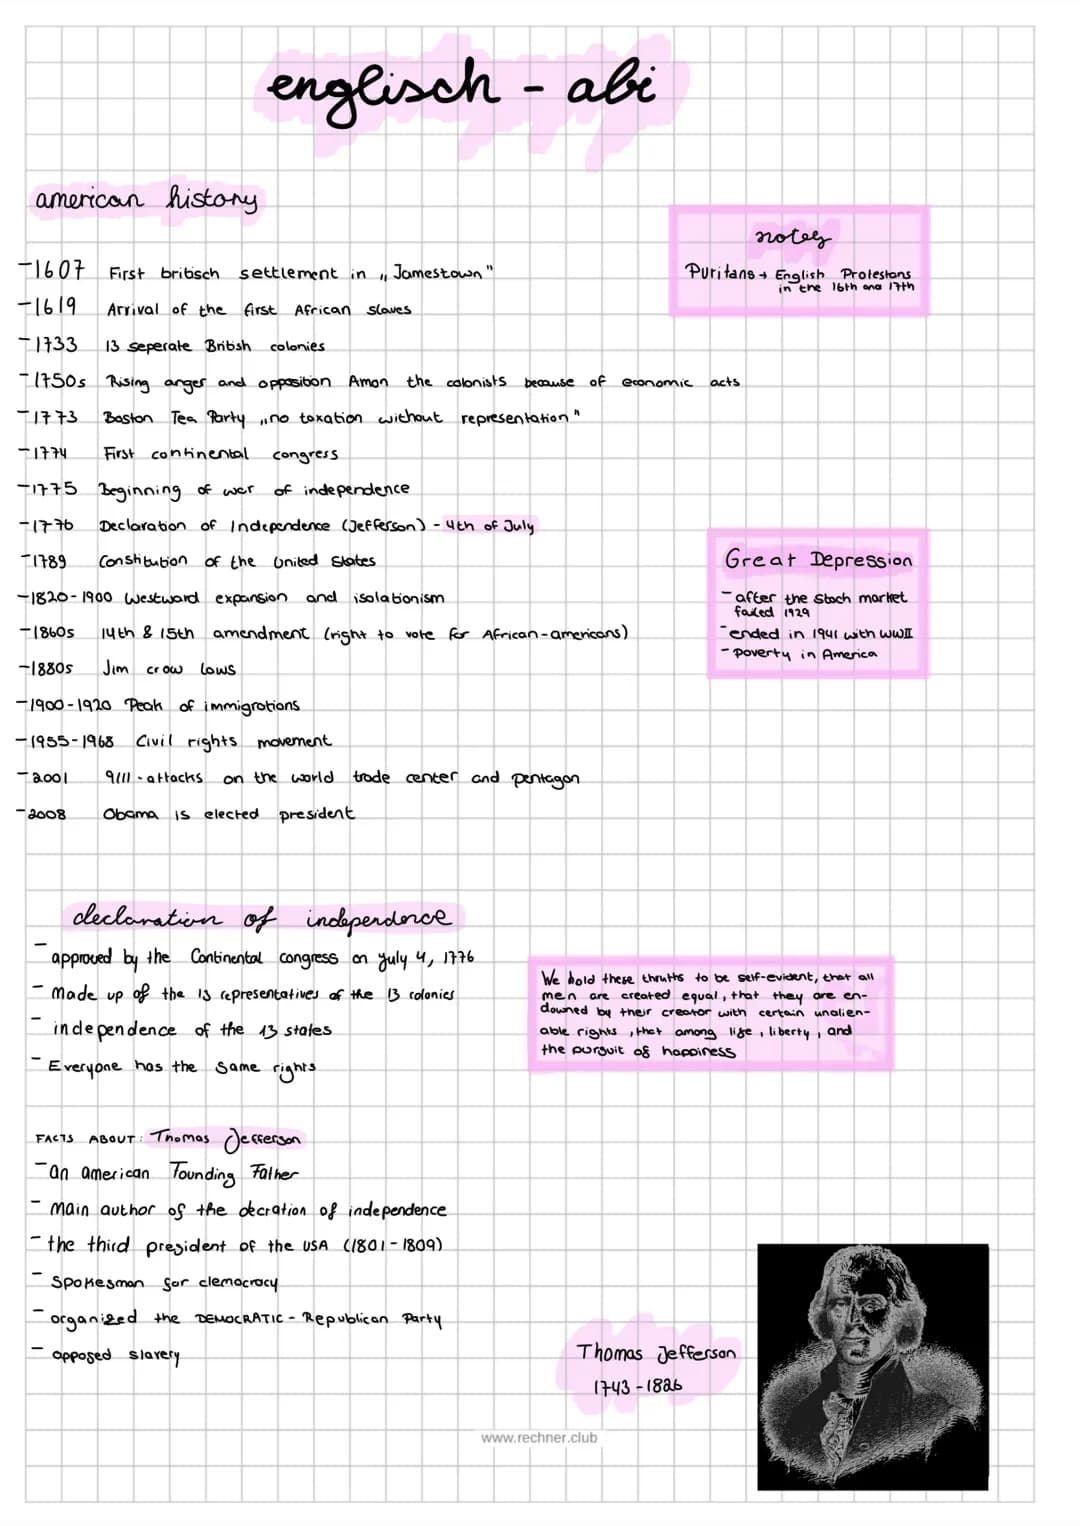 englisch - abi
american history
notes
Puritans → English Protestans
in the 16th and 17th
-1607 First british settlement in „Jamestown"
-1619 Arrival of the first African slaves
-1733 13 seperate British colonies
-1750s Rising anger and opposition Amon the colonists because of economic acts
-1773 Boston Tea Party „no taxation without representation"
-1774 First continental congress
-1775 Beginning of war of independence
-1776 Declaration of Independence (Jefferson) - 4th of July
-1789 Constitution of the United States
-1820-1900 Westward expansion and isolationism
-1860s 14th & 15th amendment (right to vote for African-americans)
-1880s Jim crow laws
-1900-1920 Peak of immigrations
-1955-1968 Civil rights movement
-2001 9/11-attacks on the world trade center and pentagon
-2008 Obama is elected president
Great Depression
- after the stock market
failed 1929
- ended in 1941 with WWII
- poverty in America
declaration of independence
- approved by the Continental congress on july 4, 1776
- Made up of the 13 representatives of the 13 colonies
- independence of the 13 states
- Everyone has the same rights
We hold these thruths to be self-evident, that all
men are created equal, that they are en-
downed by their creator with certain unalien-
able rights, that among life, liberty, and
the pursuit of happiness
FACTS ABOUT: Thomas Jefferson
- an american Founding Father
- main author of the decration of independence
- the third president of the USA (1801-1809)
- Spokesman for democracy
- organized the DEMOCRATIC-Republican Party
- opposed slavery
Thomas Jefferson
1743-1826
www.rechner.club